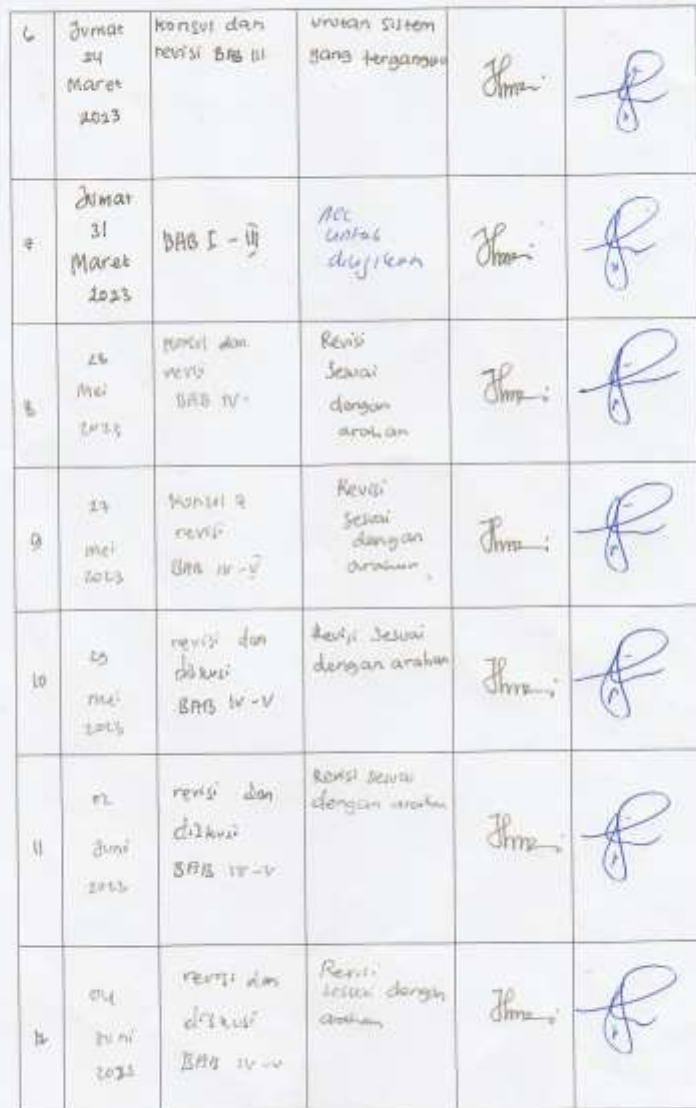 6
Jumat
24
Maret
2023
Konsul dan
revisi BAB III
urutan sistem
yang terganggu
7
Jumat
31
Maret
2023
BAB I - III
ACC
untuk
diujikan
8
Mei
2023
Konsul dan
revisi
BAB IV
Revisi
Sesuai
dengan
arahan
9
27
mei
2023
Konsul &
revisi
BAB IV - V
Revisi
sesuai
dengan
arahan
10
29
mei
2023
revisi dan
diskusi
BAB IV - V
Revisi Sesuai
dengan arahan
11
02
Juni
2023
revisi dan
diskusi
BAB IV - V
Revisi sesuai
dengan arahan
12
04
Juni
2023
revisi dan
diskusi
BAB IV - V
Revisi
sesuai dengan
arahan